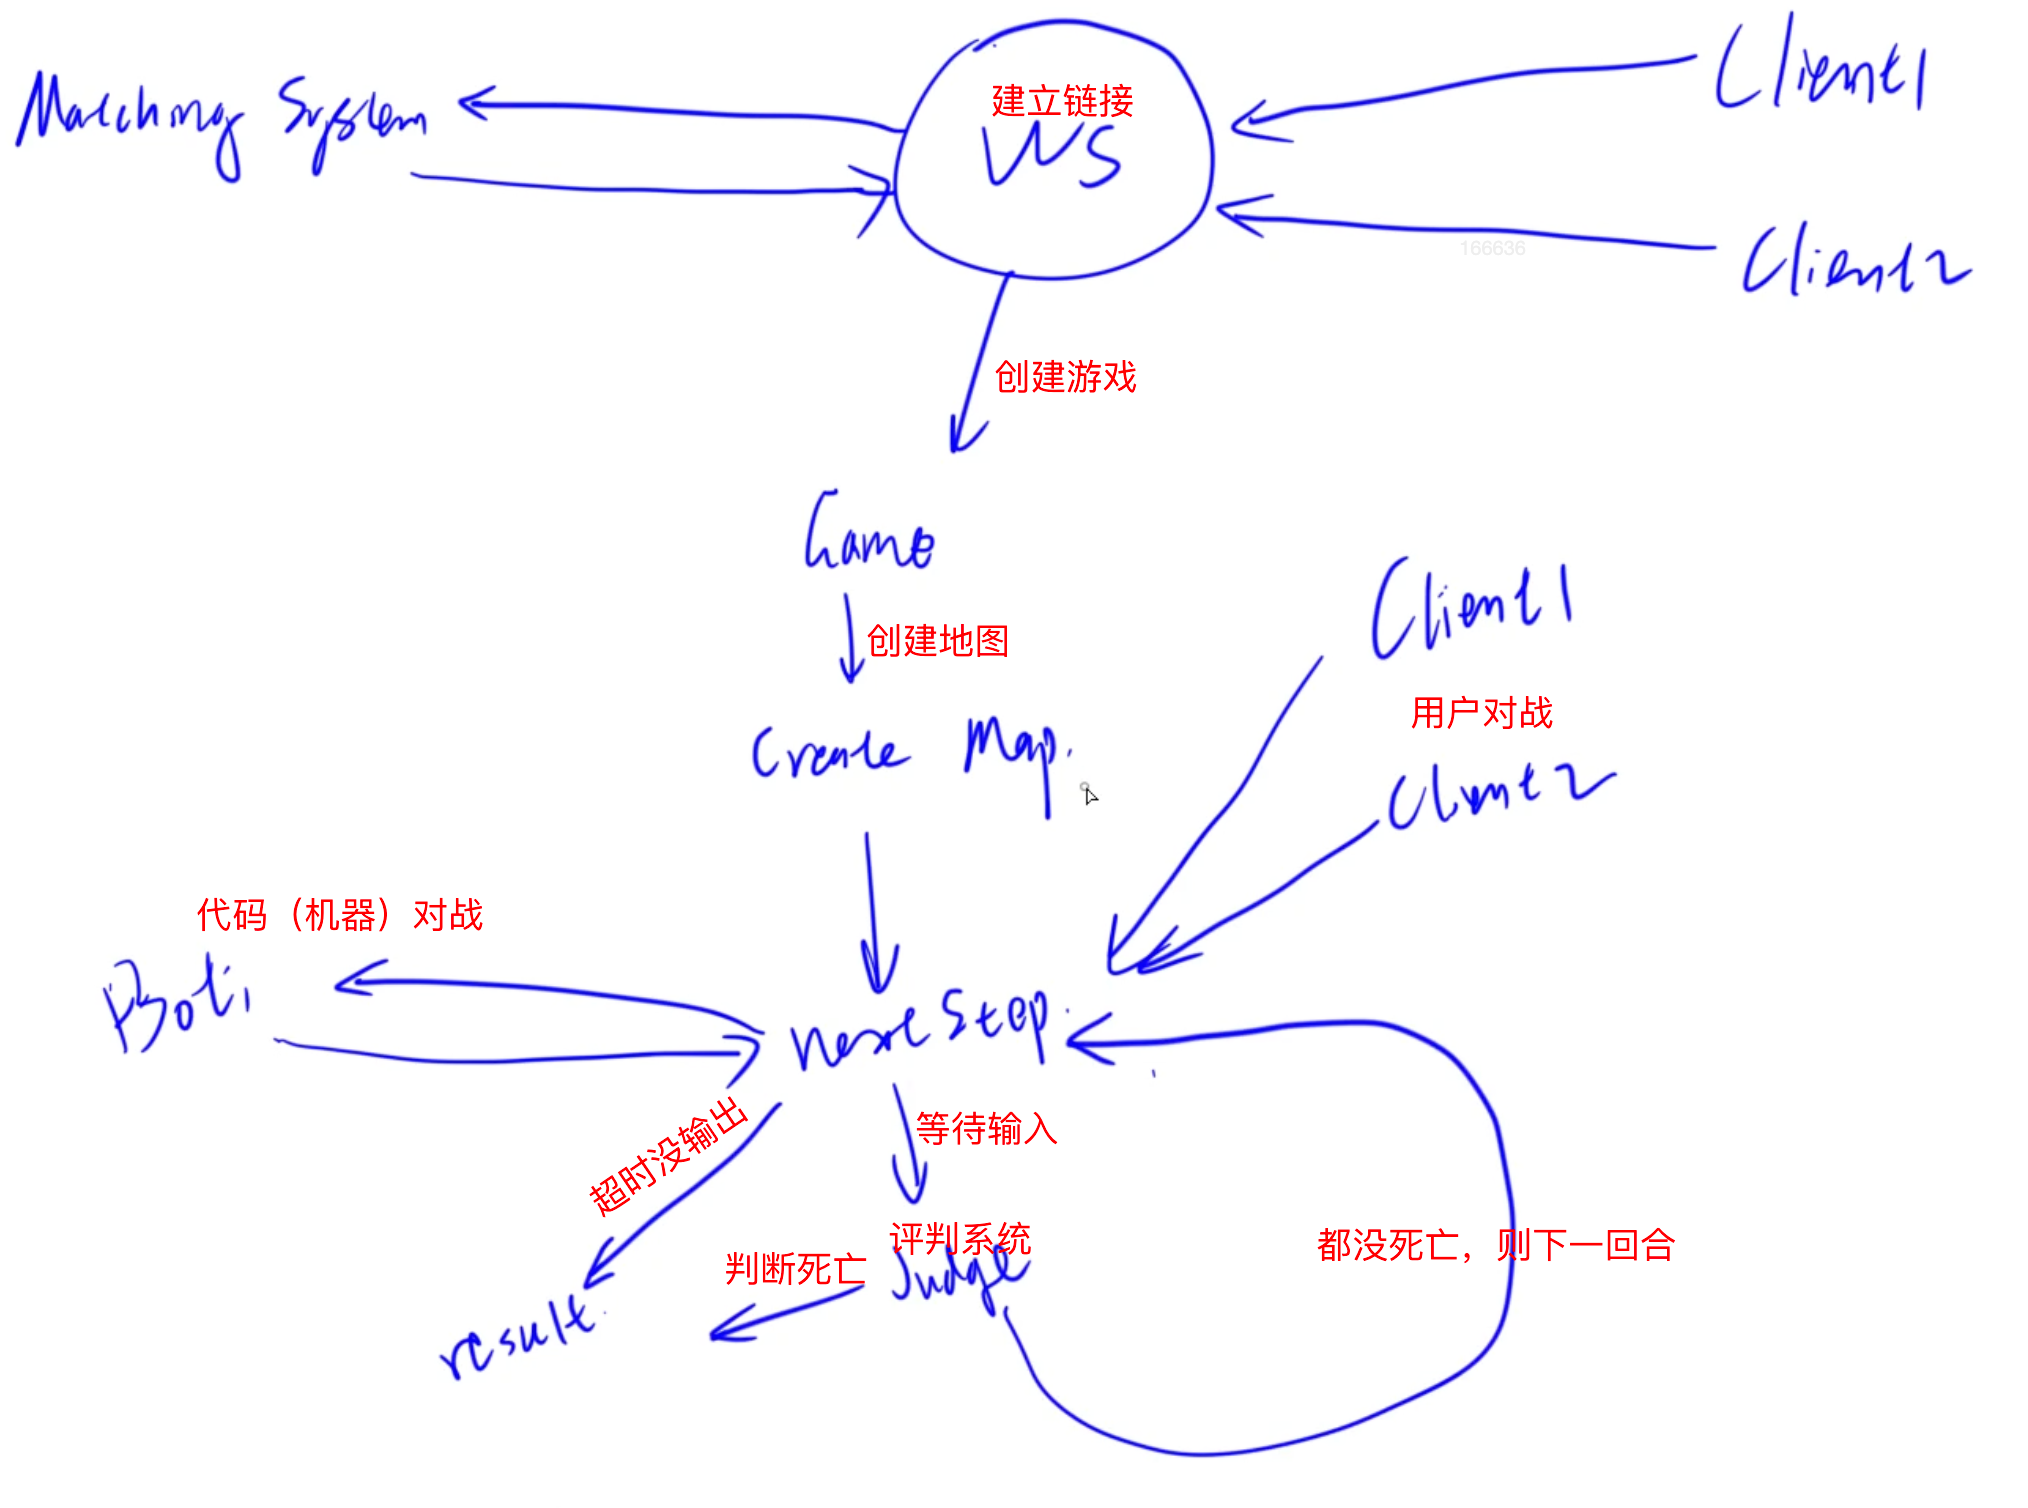 Matching System
建立链接
WS
Client1
Client2
166636
创建游戏
Game
创建地图
Create Map.
Client1
用户对战
Client2
代码（机器）对战
Bot
next step.
等待输入
超时没输出
评判系统
Judge
判断死亡
都没死亡，则下一回合
result.